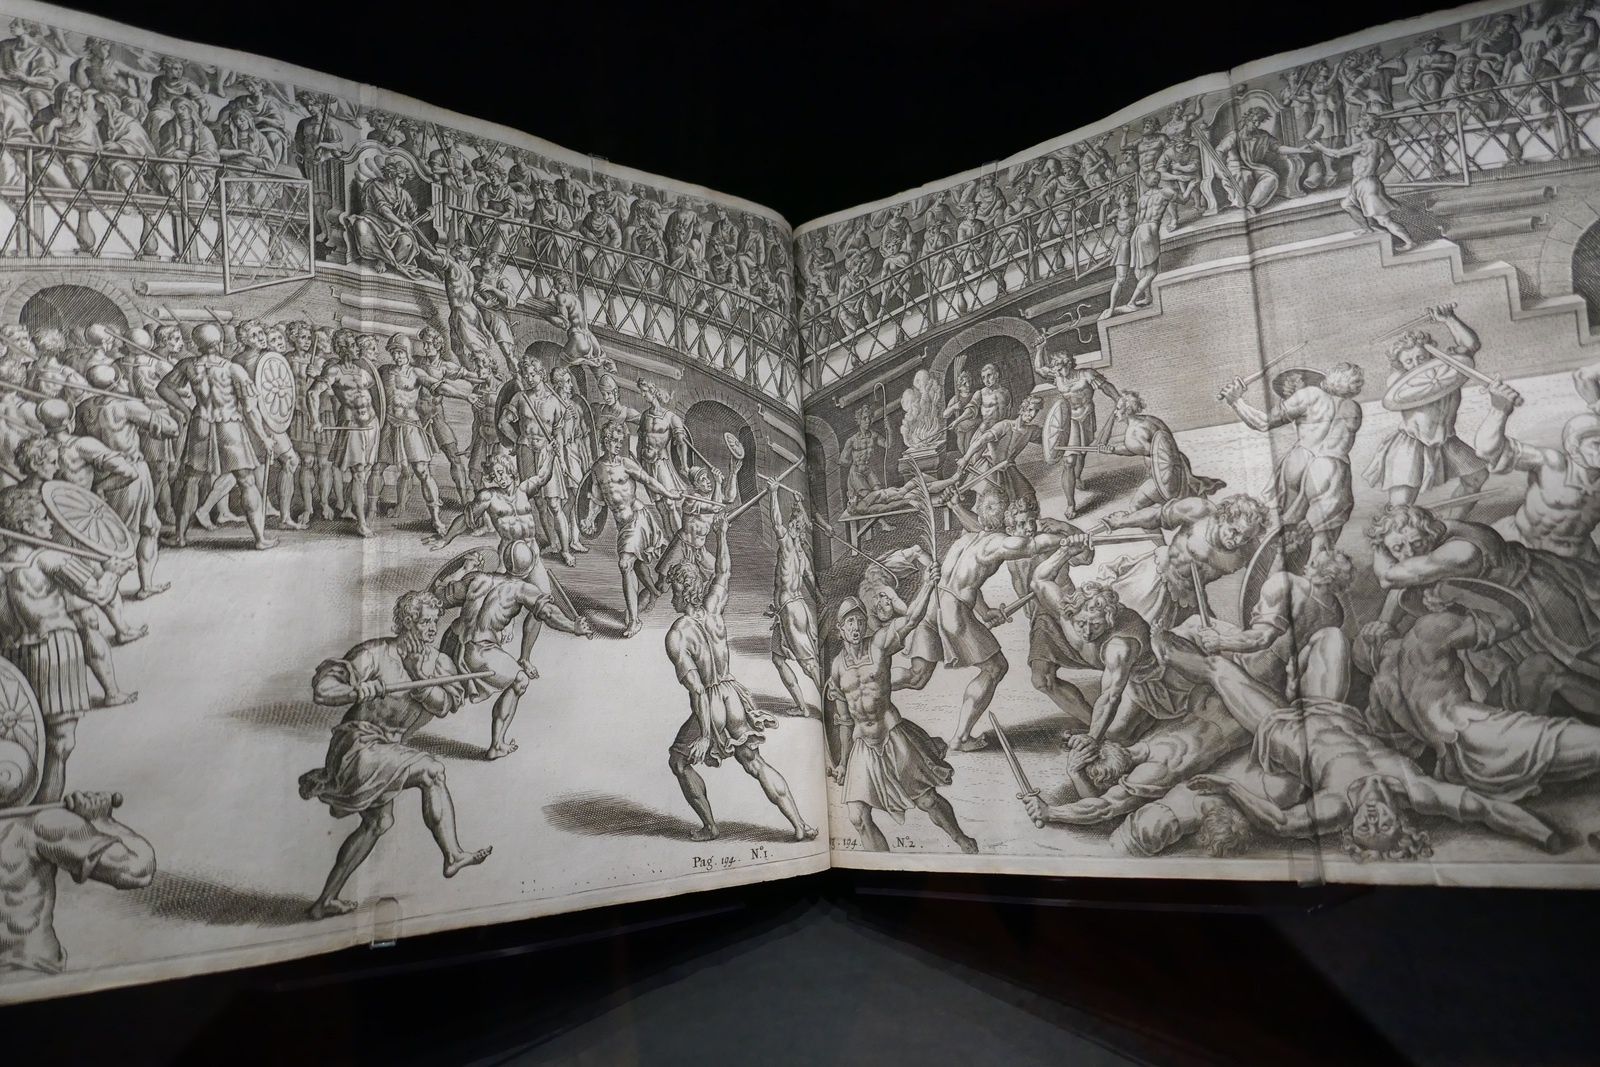 Pag. 194. Nº1.
194. Nº2.